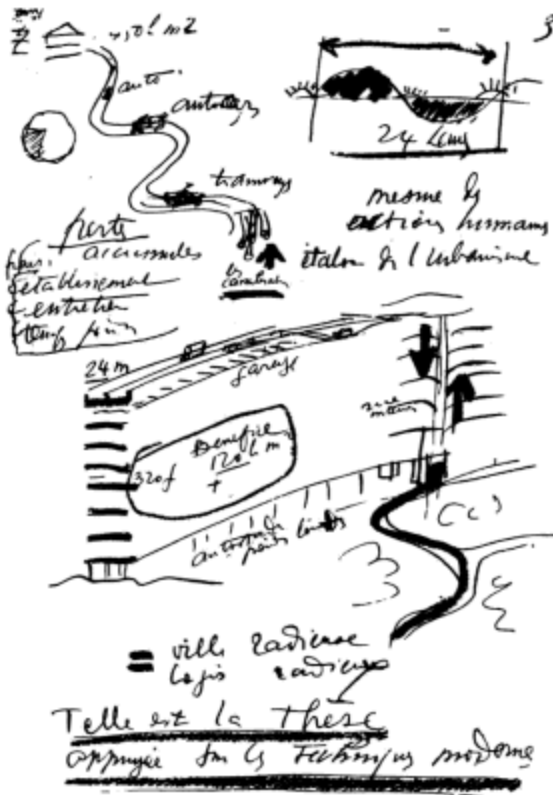 3
auto.
autocars
tramways
24 heures
mesure des
actions humaines
étalon de l'urbanisme
perte
accumulées
établissement
entretien
24 m
garage
Bénéfice
320 f
120 f m
+
autostrade
poids lourds
= ville radieuse
logis radieux
Telle est la Thèse
appuyée sur les techniques modernes